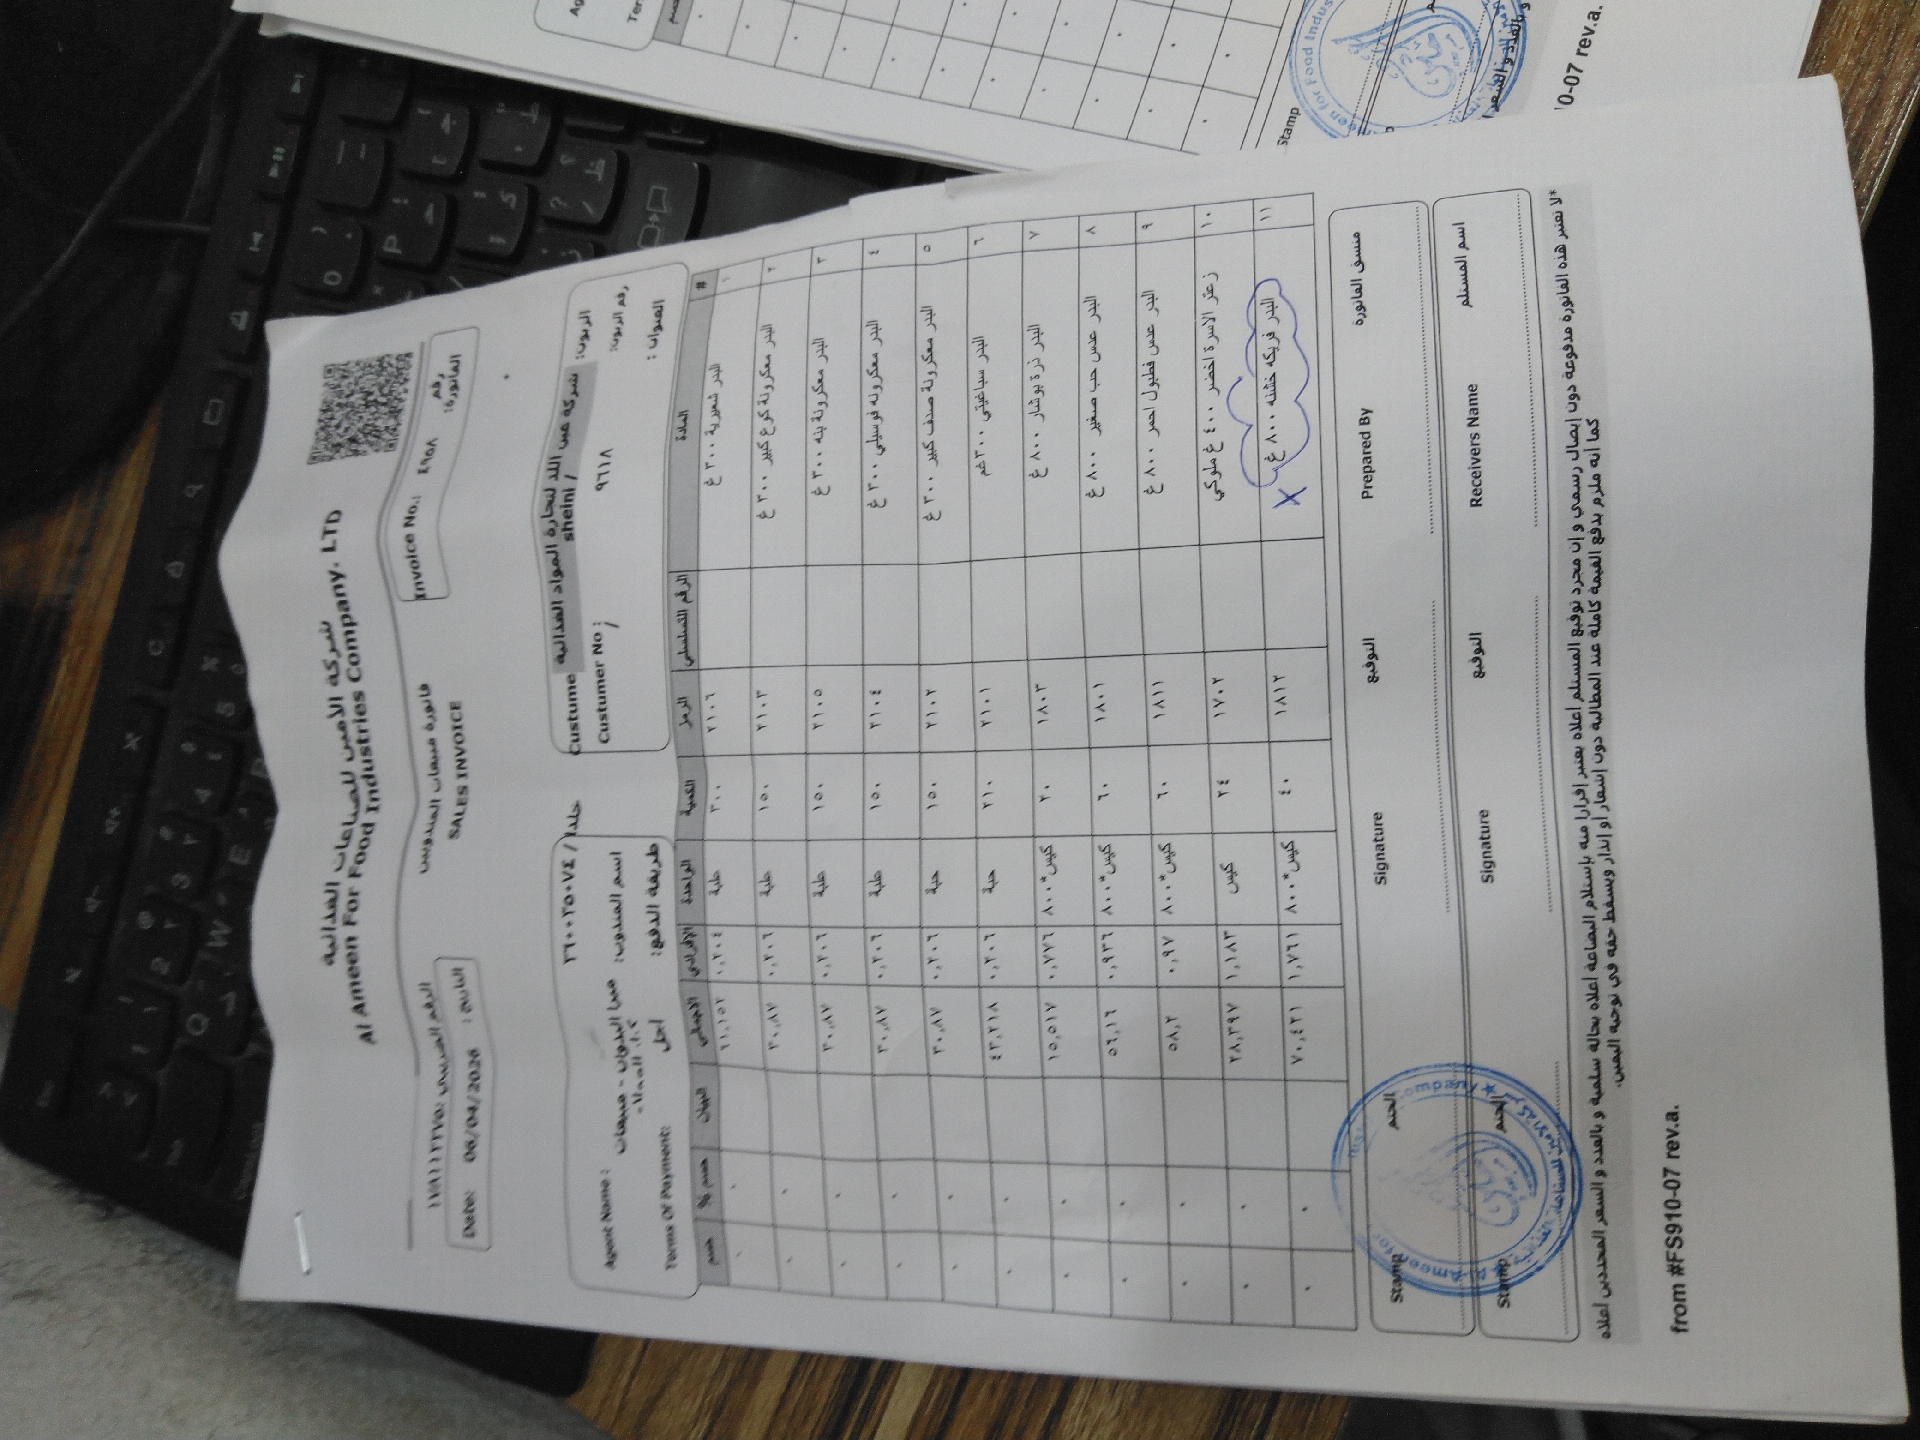 شركة الأمين للصناعات الغذائية
Al Ameen For Food Industries Company. LTD
فاتورة مبيعات المندوبين
SALES INVOICE
رقم الفاتورة: ٤٩٥٨ Invoice No.:
الرقم الضريبي
Date: 06/04/2026 التاريخ :
الزبون: شركة عين اللد لتجارة المواد الغذائية / sheini
رقم الزبون: ٩٦١٨ Custumer No :
العنوان : /
خلدا / ٢٦٠٠٢٥٠٧٤
اسم المندوب: Agent Name :
طريقة الدفع: اجل Terms Of Payment:
# المادة الرقم التسلسلي الرمز الكمية الواحدة الإفرادي الإجمالي البيان حسم % حسم
١ البدر شعيرية ٣٠٠ غ ٢١٠٦ ٣٠٠ حبة ٠,٢٠٤ ٠ ٠
٢ البدر معكرونة كوع كبير ٣٠٠ غ ٢١٠٣ ١٥٠ حبة ٠,٢٠٦ ٣٠,٨٧ ٠ ٠
٣ البدر معكرونة بنه ٣٠٠ غ ٢١٠٥ ١٥٠ حبة ٠,٢٠٦ ٣٠,٨٧ ٠ ٠
٤ البدر معكرونه فوسيلي ٣٠٠ غ ٢١٠٤ ١٥٠ حبة ٠,٢٠٦ ٣٠,٨٧ ٠ ٠
٥ البدر معكرونة صدف كبير ٣٠٠ غ ٢١٠٢ ١٥٠ حبة ٠,٢٠٦ ٣٠,٨٧ ٠ ٠
٦ البدر سباغيتي ٣٠٠غم ٢١٠١ ٢١٠ حبة ٠,٢٠٦ ٤٣,٢١٨ ٠ ٠
٧ البدر ذرة بوشار ٨٠٠ غ ١٨٠٣ ٢٠ كيس*٨٠٠ ٠,٧٧٦ ١٥,٥١٧ ٠ ٠
٨ البدر عدس حب صغير ٨٠٠ غ ١٨٠١ ٦٠ كيس*٨٠٠ ٠,٩٣٦ ٥٦,١٦ ٠ ٠
٩ البدر عدس فطبول احمر ٨٠٠ غ ١٨١١ ٦٠ كيس*٨٠٠ ٠,٩٧ ٥٨,٢ ٠ ٠
١٠ زعتر الاسرة اخضر ٤٠٠ غ ملوكي ١٧٠٢ ٢٤ كيس ١,١٨٣ ٢٨,٣٩٧ ٠ ٠
١١ البدر فريكه خشنه ٨٠٠ غ X ١٨١٢ ٤٠ كيس*٨٠٠ ١,٧٦١ ٧٠,٤٢١ ٠ ٠
منسق الفاتورة Prepared By التوقيع Signature الختم Stamp
اسم المستلم Receivers Name التوقيع Signature الختم Stamp
*لا تعتبر هذه الفاتورة مدفوعة دون إيصال رسمي و إن مجرد توقيع المستلم اعلاه يعتبر إقرارا منه بإستلام البضاعة اعلاه بحالة سليمة و بالعدد و السعر المحددين اعلاه
كما أنه ملزم بدفع القيمة كاملة عند المطالبة دون إشعار أو إنذار ويسقط حقه في توجيه اليمين.
from #FS910-07 rev.a.
Stamp
0-07 rev.a.